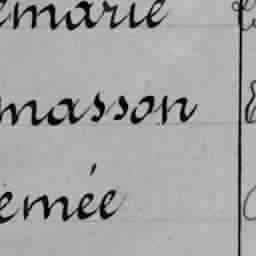 emarie
masson
emée